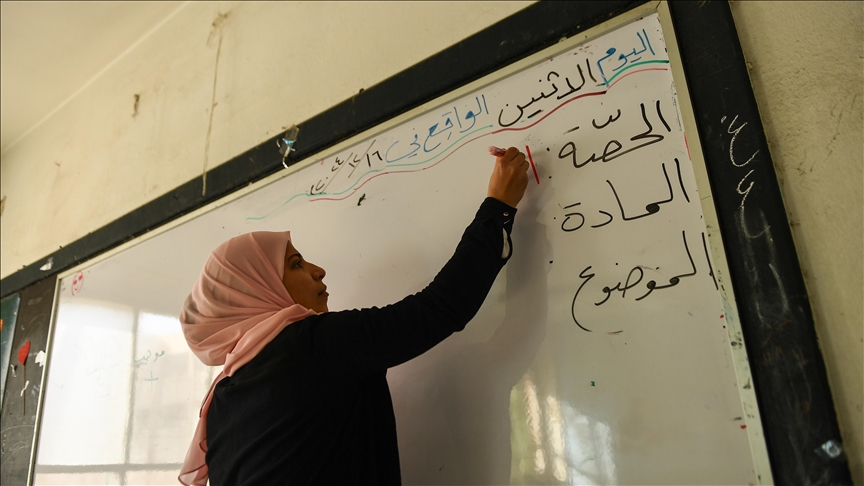 اليوم الاثنين الواقع في ١٦/١٢/
الحصّة: ١
المادة:
الموضوع: